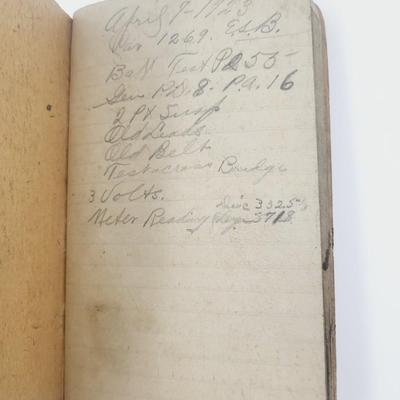 April 9-1923
Car 1269. E.S.B.
Bat Test P255
Gen P.D. 8. P.A. 16
2 Pt Susp
Old Leads
Old Belt
Test across Bridge
3 Volts.
Meter Reading